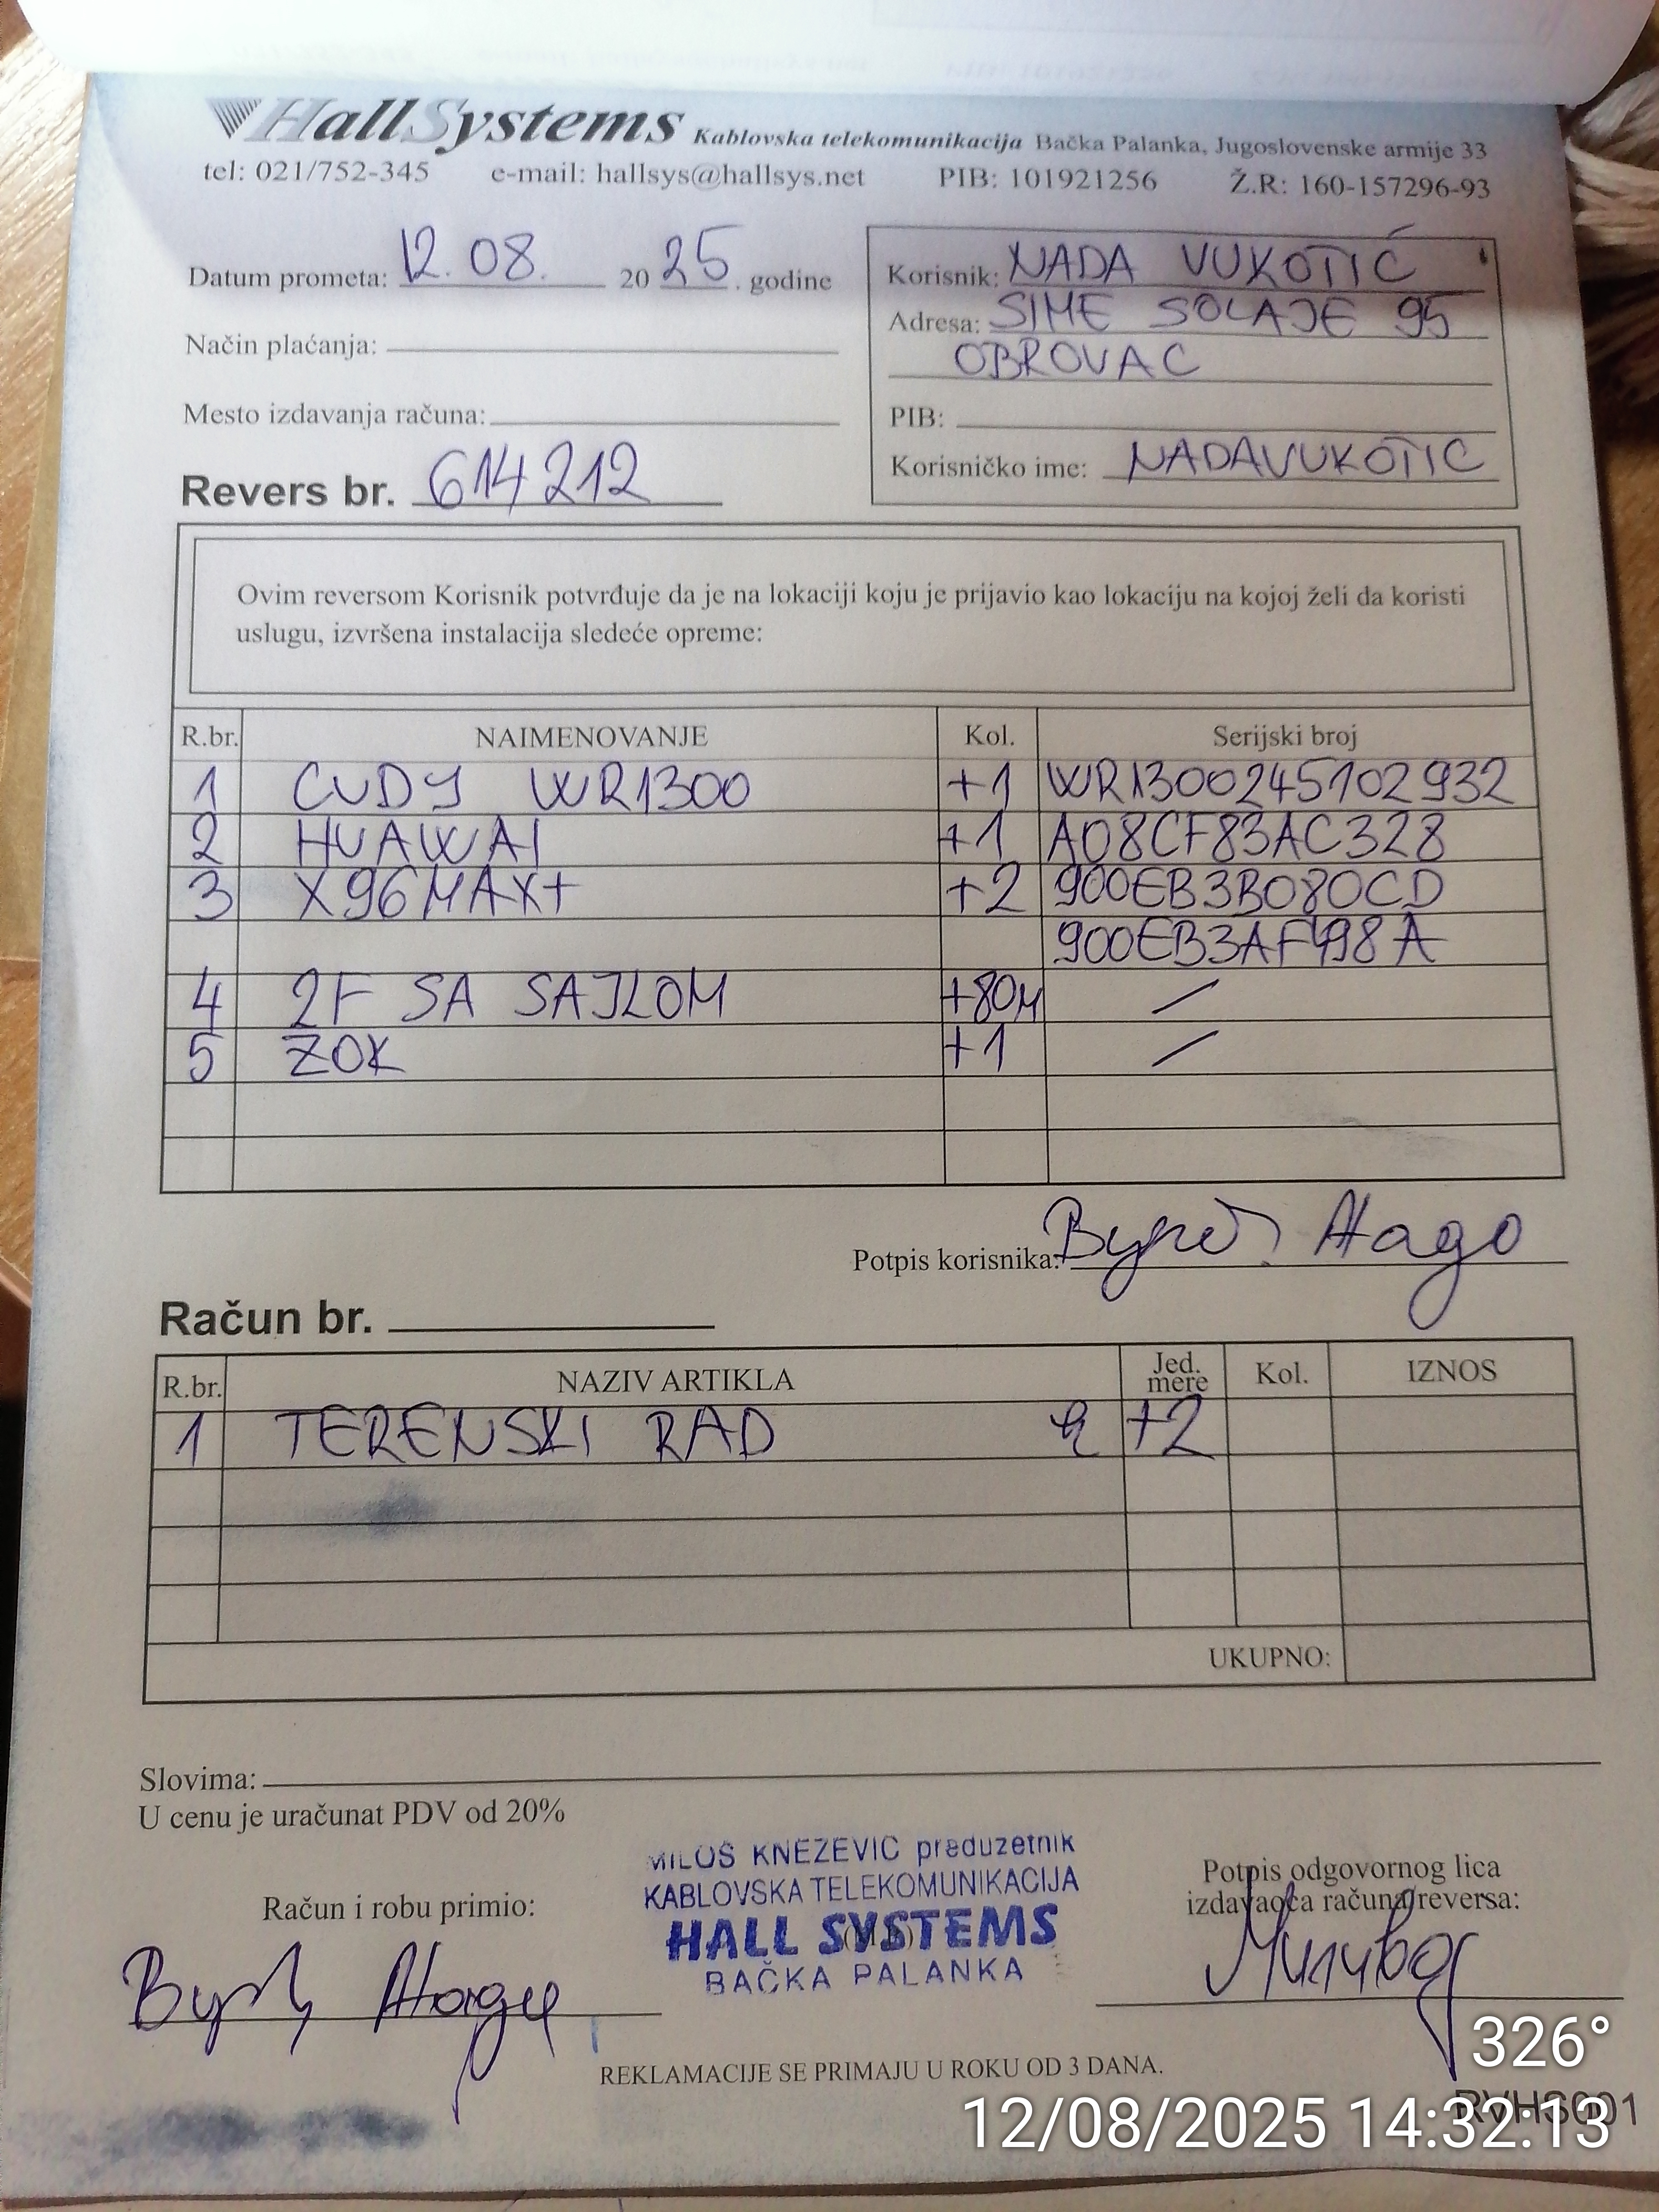 HallSystems Kablovska telekomunikacija Bačka Palanka, Jugoslovenske armije 33
tel: 021/752-345 e-mail: hallsys@hallsys.net PIB: 101921256 Ž.R: 160-157296-93
Datum prometa: 12.08. 2025. godine
Način plaćanja:
Mesto izdavanja računa:
Revers br. 614212
Korisnik: NADA VUKOTIĆ
Adresa: SIME SOLAJE 95
OBROVAC
PIB:
Korisničko ime: NADAVUKOTIC
Ovim reversom Korisnik potvrđuje da je na lokaciji koju je prijavio kao lokaciju na kojoj želi da koristi
uslugu, izvršena instalacija sledeće opreme:
R.br. NAIMENOVANJE Kol. Serijski broj
1 CUDY WR1300 +1 WR1300245102932
2 HUAWAI +1 A08CF83AC328
3 X96MAX+ +2 900EB3B080CD
900EB3AF498A
4 2F SA SAJLOM +80M /
5 ZOK +1 /
Potpis korisnika:
Račun br.
R.br. NAZIV ARTIKLA Jed. mere Kol. IZNOS
1 TERENSKI RAD +2
UKUPNO:
Slovima:
U cenu je uračunat PDV od 20%
MILOŠ KNEZEVIC preduzetnik
KABLOVSKA TELEKOMUNIKACIJA
HALL SYSTEMS
BAČKA PALANKA
Račun i robu primio:
Potpis odgovornog lica
izdavaoca računa/reversa:
REKLAMACIJE SE PRIMAJU U ROKU OD 3 DANA.
326°
RVHS001
12/08/2025 14:32:13